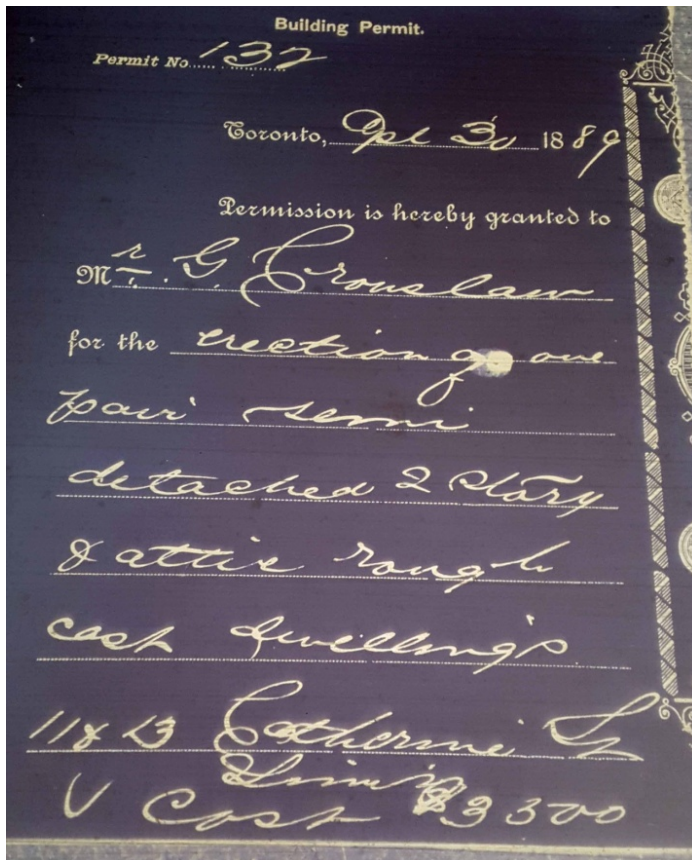 Building Permit.
Permit No. 132
Toronto, Apl 30 1889
Permission is hereby granted to
Mr. G Crouslaw
for the erection of one
pair semi
detached 2 story
& attic rough
cast dwellings
11 & 13 Catherine St
Cost $3300